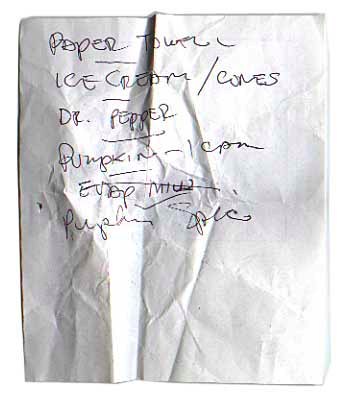 PAPER TOWEL
ICE CREAM / CONES
DR. PEPPER
PUMPKIN - 1 can
EVAP MILK
Pumpkin Spice